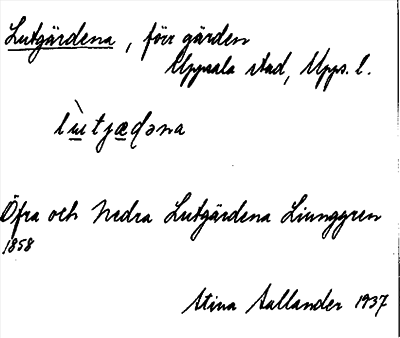 Lutgärdena, förr gärden
Uppsala stad, Upps. l.
lùtjæɖəna
Öfra och Nedra Lutgärdena Liunggren
1858
Stina Sallander 1937